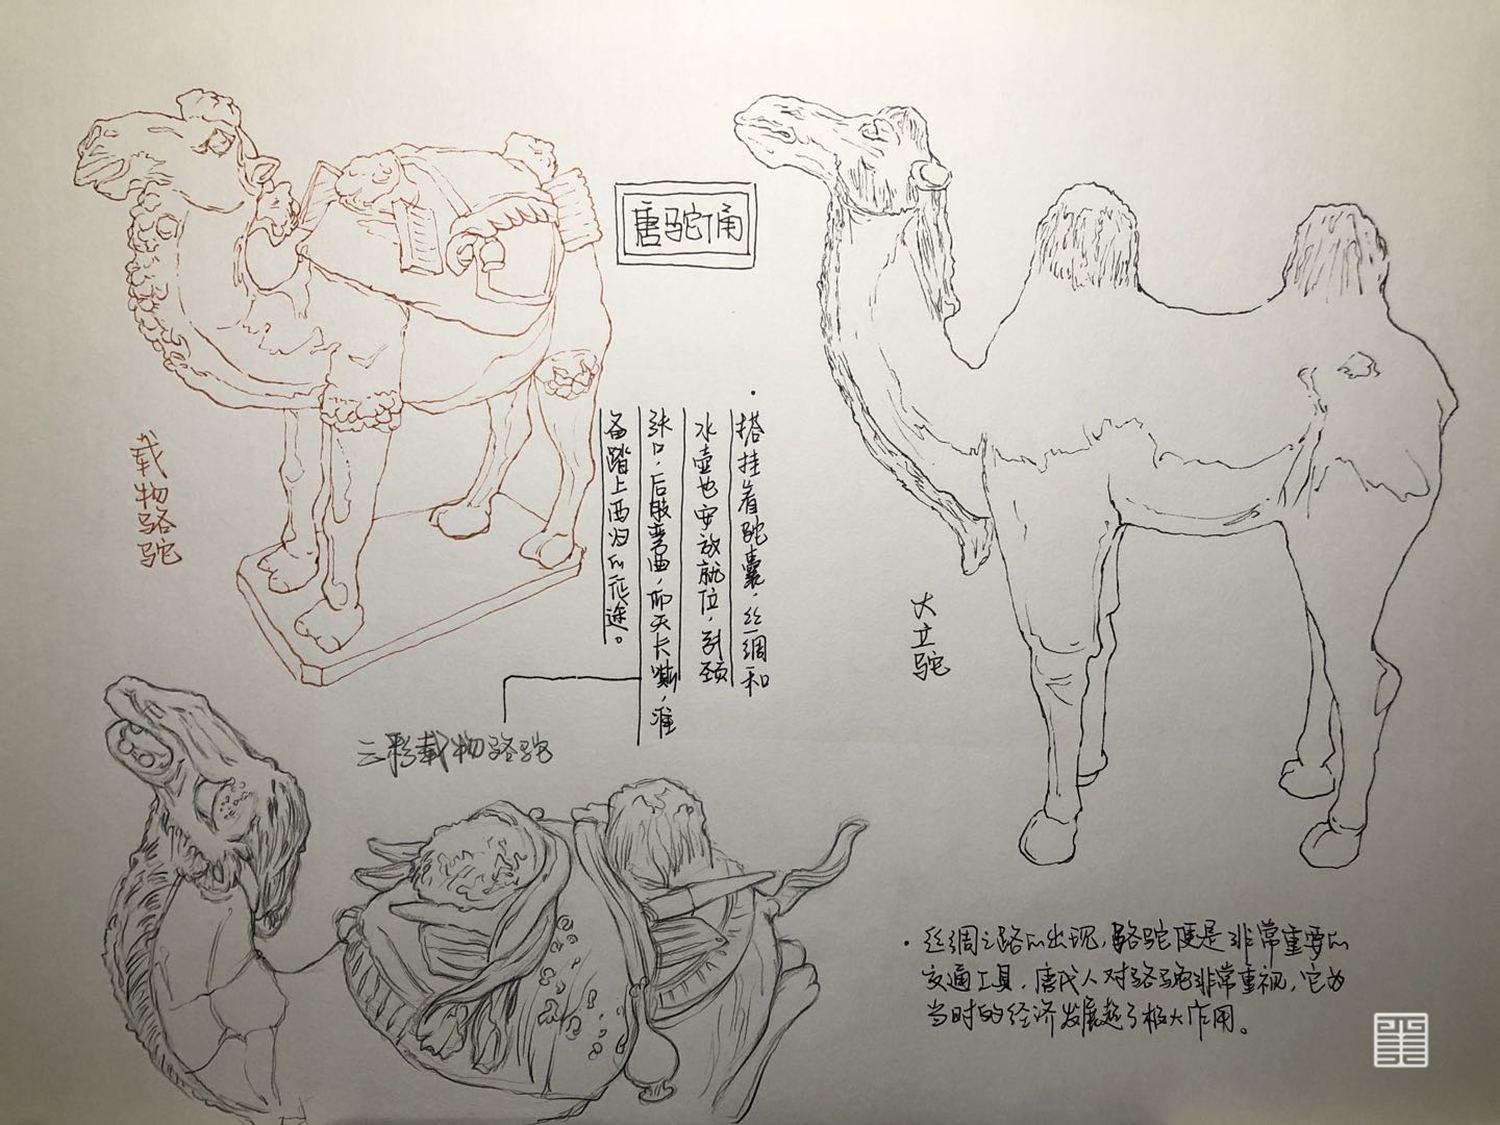 唐驼俑
载物骆驼
搭挂着驼囊，丝绸和
水壶也安放就位，引颈
张口，后肢弯曲，仰天长嘶，准
备踏上西归的征途。
三彩载物骆驼
大立驼
·丝绸之路的出现，骆驼便是非常重要的
交通工具，唐代人对骆驼非常重视，它为
当时的经济发展起了极大作用。